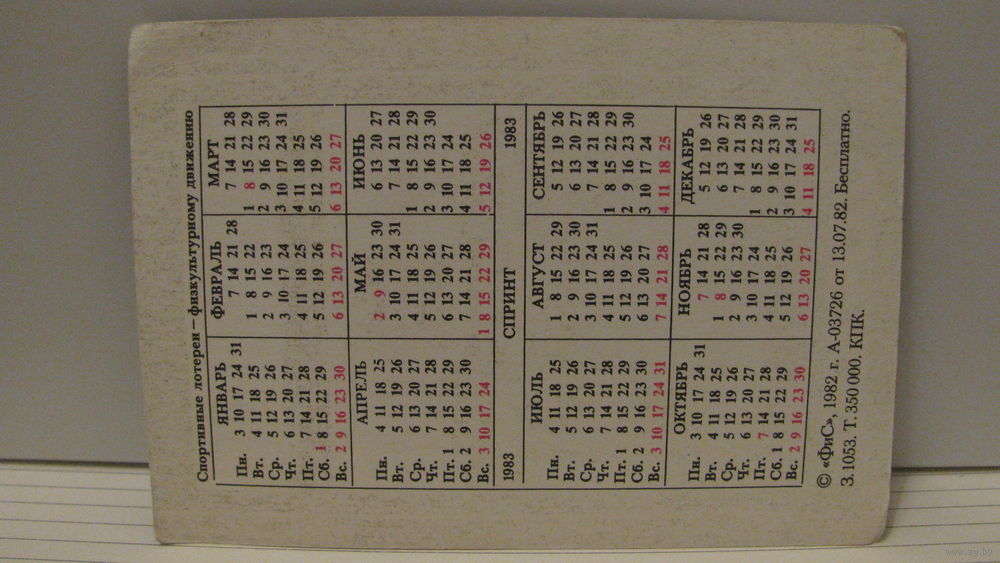 Спортивные лотереи — физкультурному движению
ЯНВАРЬ ФЕВРАЛЬ МАРТ
Пн. 3 10 17 24 31 7 14 21 28 7 14 21 28
Вт. 4 11 18 25 1 8 15 22 1 8 15 22 29
Ср. 5 12 19 26 2 9 16 23 2 9 16 23 30
Чт. 6 13 20 27 3 10 17 24 3 10 17 24 31
Пт. 7 14 21 28 4 11 18 25 4 11 18 25
Сб. 1 8 15 22 29 5 12 19 26 5 12 19 26
Вс. 2 9 16 23 30 6 13 20 27 6 13 20 27
АПРЕЛЬ МАЙ ИЮНЬ
Пн. 4 11 18 25 2 9 16 23 30 6 13 20 27
Вт. 5 12 19 26 3 10 17 24 31 7 14 21 28
Ср. 6 13 20 27 4 11 18 25 1 8 15 22 29
Чт. 7 14 21 28 5 12 19 26 2 9 16 23 30
Пт. 1 8 15 22 29 6 13 20 27 3 10 17 24
Сб. 2 9 16 23 30 7 14 21 28 4 11 18 25
Вс. 3 10 17 24 1 8 15 22 29 5 12 19 26
1983 СПРИНТ 1983
ИЮЛЬ АВГУСТ СЕНТЯБРЬ
Пн. 4 11 18 25 1 8 15 22 29 5 12 19 26
Вт. 5 12 19 26 2 9 16 23 30 6 13 20 27
Ср. 6 13 20 27 3 10 17 24 31 7 14 21 28
Чт. 7 14 21 28 4 11 18 25 1 8 15 22 29
Пт. 1 8 15 22 29 5 12 19 26 2 9 16 23 30
Сб. 2 9 16 23 30 6 13 20 27 3 10 17 24
Вс. 3 10 17 24 31 7 14 21 28 4 11 18 25
ОКТЯБРЬ НОЯБРЬ ДЕКАБРЬ
Пн. 3 10 17 24 31 7 14 21 28 5 12 19 26
Вт. 4 11 18 25 1 8 15 22 29 6 13 20 27
Ср. 5 12 19 26 2 9 16 23 30 7 14 21 28
Чт. 6 13 20 27 3 10 17 24 1 8 15 22 29
Пт. 7 14 21 28 4 11 18 25 2 9 16 23 30
Сб. 1 8 15 22 29 5 12 19 26 3 10 17 24 31
Вс. 2 9 16 23 30 6 13 20 27 4 11 18 25
© «ФиС», 1982 г. А-03726 от 13.07.82. Бесплатно.
З. 1053. Т. 350 000. КПК.
www.ay.by